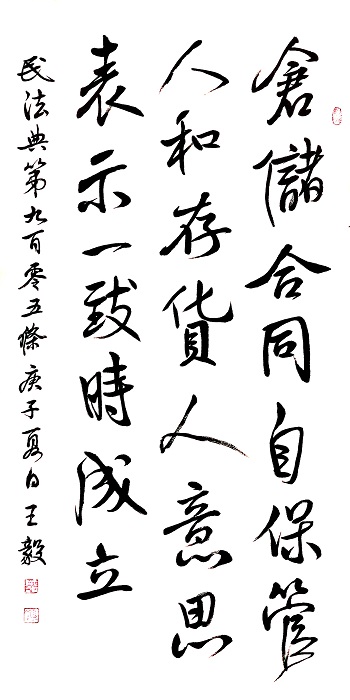 倉儲合同自保管
人和存貨人意思
表示一致時成立
民法典第九百零五條庚子夏日王毅